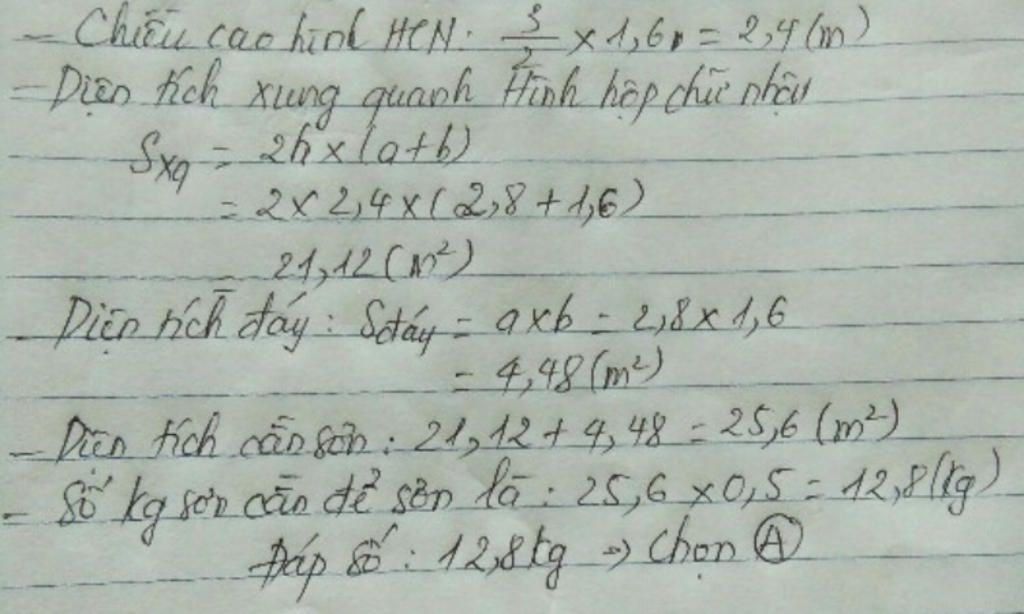 - Chiều cao hình HCN: 3/2 × 1,6 = 2,4 (m)
- Diện tích xung quanh Hình hộp chữ nhật
Sxq = 2h × (a+b)
= 2 × 2,4 × (2,8 + 1,6)
= 21,12 (m²)
- Diện tích đáy: Sđáy = a×b = 2,8 × 1,6
= 4,48 (m²)
- Diện tích cần sơn: 21,12 + 4,48 = 25,6 (m²)
- Số kg sơn cần để sơn là: 25,6 × 0,5 = 12,8 (kg)
Đáp số: 12,8kg => Chọn A